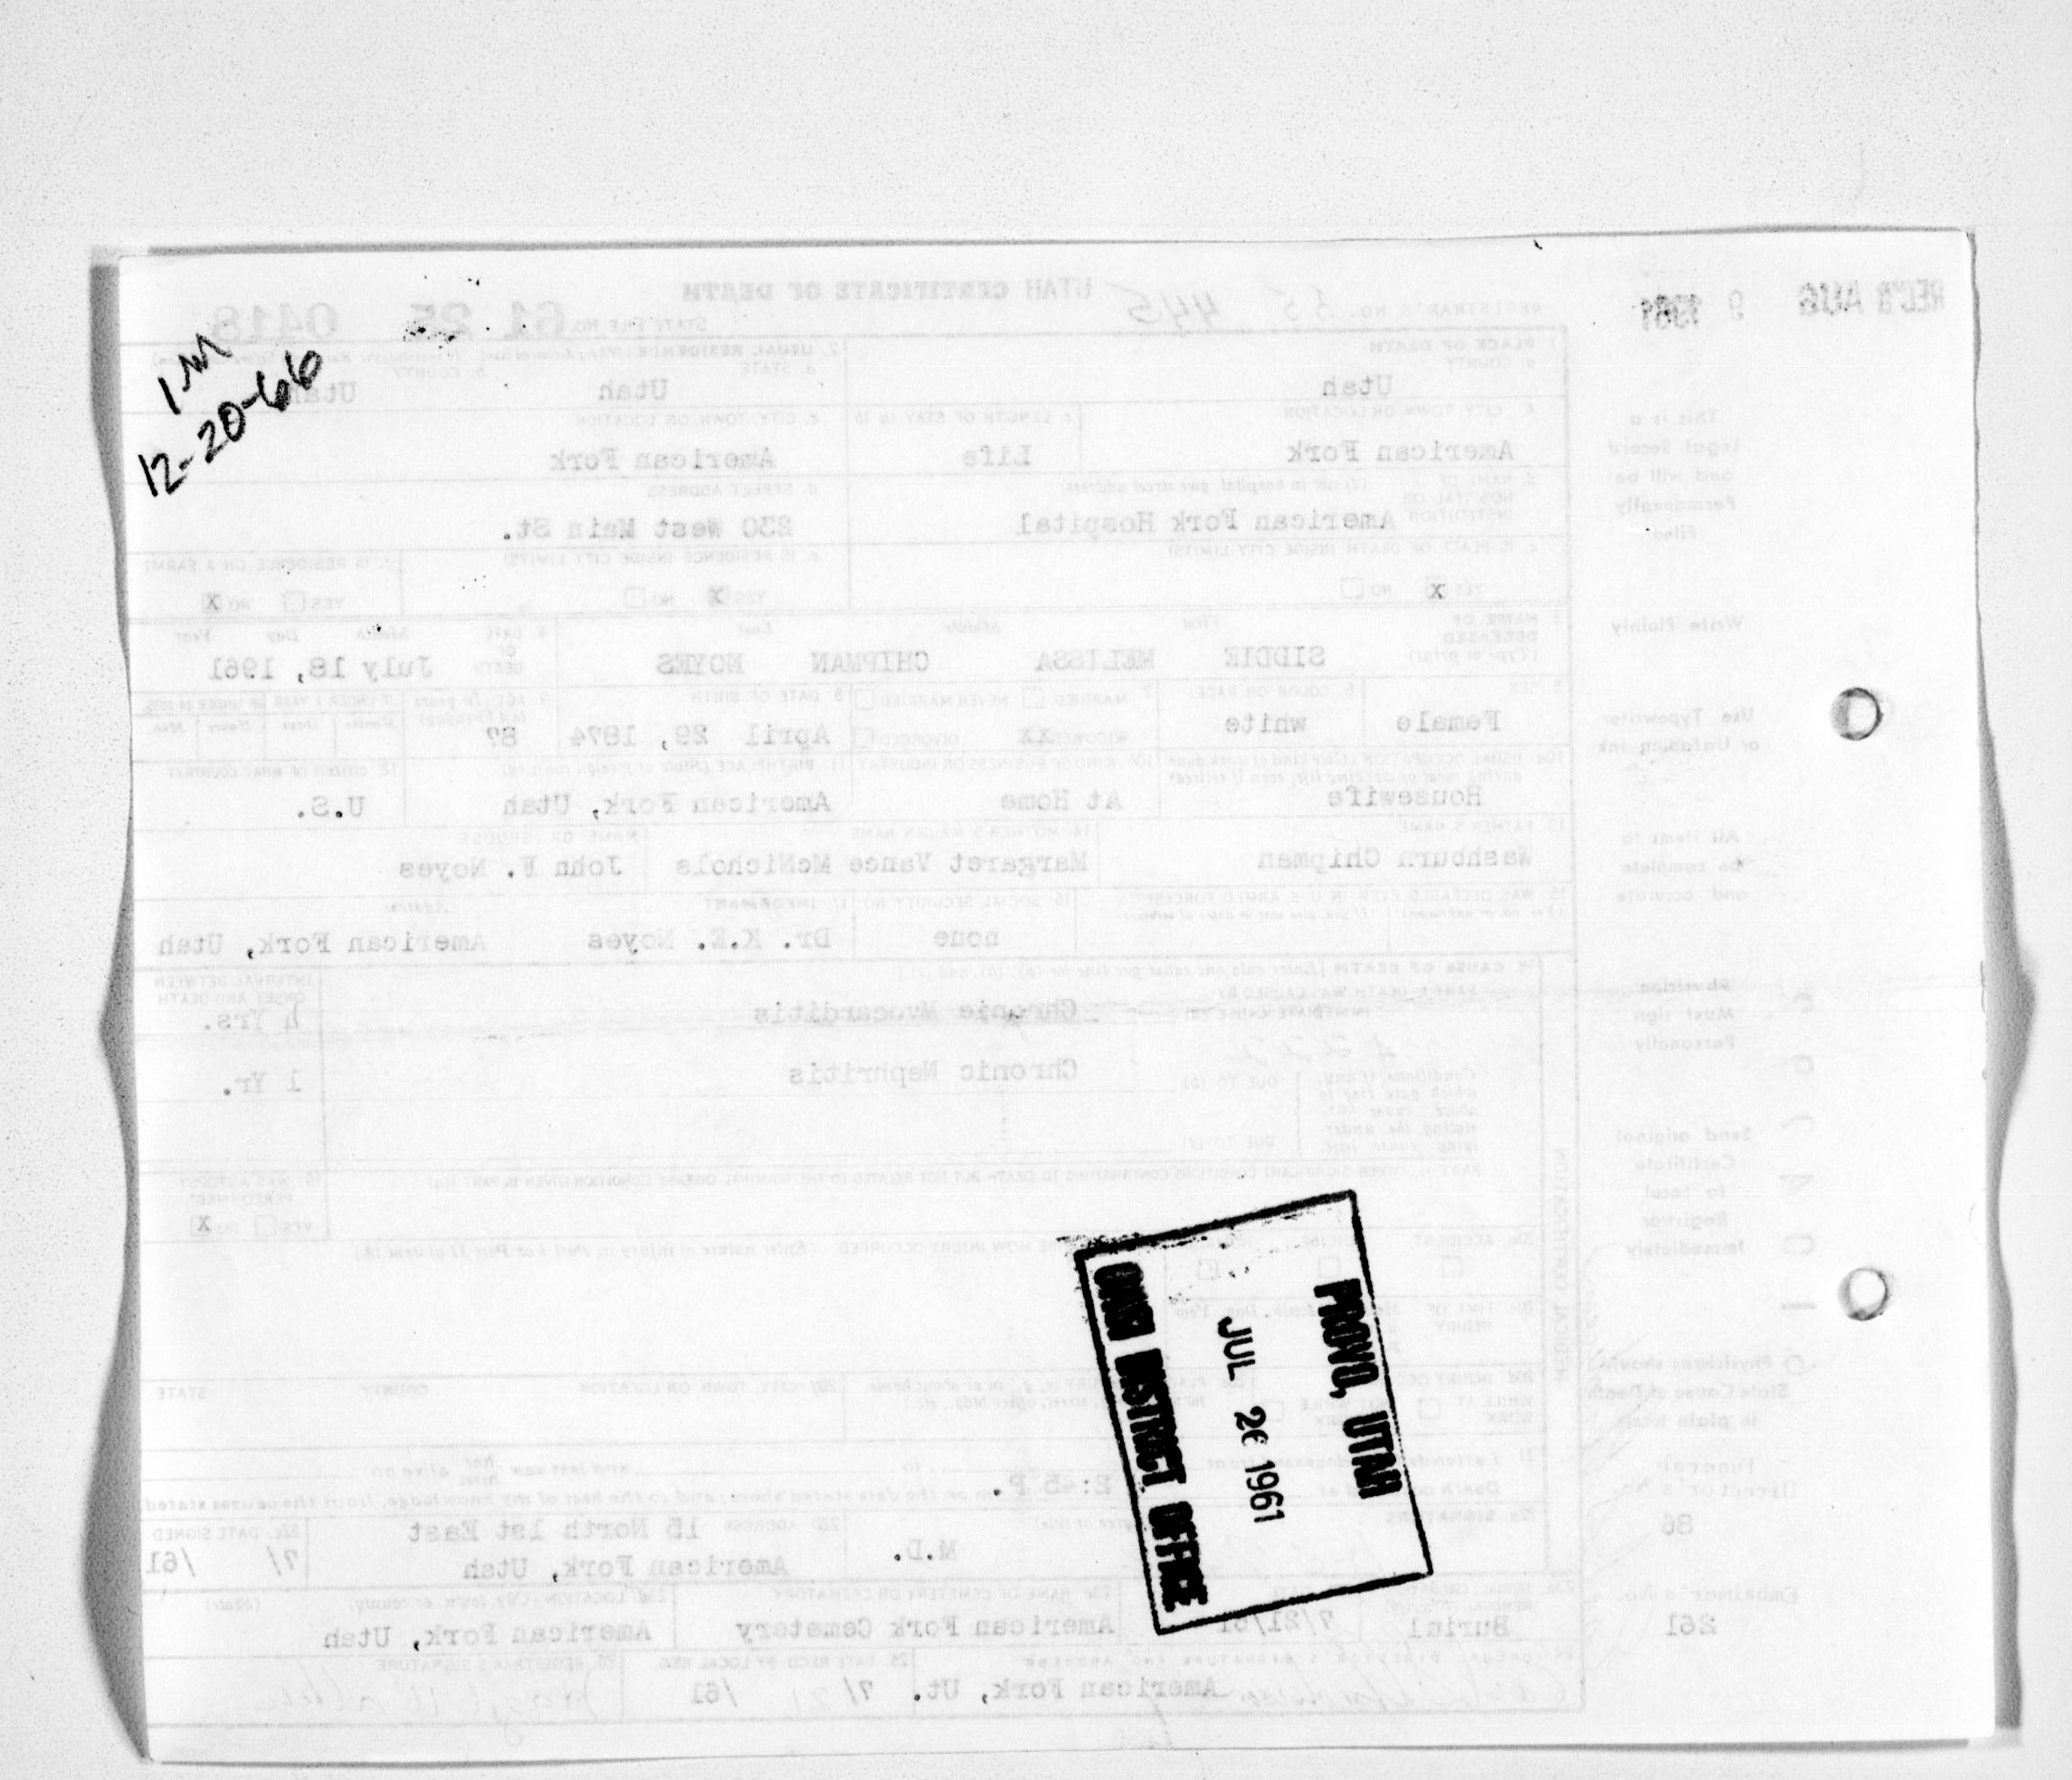 REC'D AUG 9 1961
REGISTRAR'S NO. 35 445
UTAH CERTIFICATE OF DEATH
STATE FILE NO. 61 25 0418
1M
12-20-66
1 PLACE OF DEATH
a. COUNTY
Utah
2. USUAL RESIDENCE
a. STATE
Utah
b. COUNTY
Utah
b. CITY TOWN, OR LOCATION
American Fork
c LENGTH OF STAY IN 1b
Life
c. CITY TOWN, OR LOCATION
American Fork
d. NAME OF HOSPITAL OR INSTITUTION (If not in hospital, give street address)
American Fork Hospital
d. STREET ADDRESS
230 West Main St.
e. IS PLACE OF DEATH INSIDE CITY LIMITS?
YES X NO
e. IS RESIDENCE INSIDE CITY LIMITS?
YES X NO
f. IS RESIDENCE ON A FARM?
YES NO X
3 NAME OF DECEASED (Type or print)
First Middle Last
SIDDIE MELISSA CHIPMAN NOYES
4 DATE OF DEATH
Month Day Year
July 18, 1961
5 SEX
Female
6 COLOR OR RACE
white
7 MARRIED NEVER MARRIED
WIDOWED XX DIVORCED
8 DATE OF BIRTH
April 29, 1874
9 AGE (In years last birthday)
87
IF UNDER 1 YEAR IF UNDER 24 HRS.
Months Days Hours Min.
10a USUAL OCCUPATION (Give kind of work done during most of working life, even if retired)
Housewife
10b KIND OF BUSINESS OR INDUSTRY
At Home
11 BIRTHPLACE (State or foreign country)
American Fork, Utah
12. CITIZEN OF WHAT COUNTRY
U.S.
13 FATHER'S NAME
Washburn Chipman
14 MOTHER'S MAIDEN NAME
Margaret Vance McNichols
NAME OF SPOUSE
John F. Noyes
15 WAS DECEASED EVER IN U.S. ARMED FORCES?
(Yes, no, or unknown) (If yes, give war or dates of service)
16 SOCIAL SECURITY NO
none
17 INFORMANT Address
Dr. K.E. Noyes American Fork, Utah
18 CAUSE OF DEATH [Enter only one cause per line for (a), (b), and (c).]
PART I DEATH WAS CAUSED BY
IMMEDIATE CAUSE (a)
Chronic Myocarditis
INTERVAL BETWEEN ONSET AND DEATH
4 Yrs.
4222
Conditions if any, which gave rise to above cause (a), stating the underlying cause last.
DUE TO (b)
Chronic Nephritis
1 Yr.
DUE TO (c)
PART II. OTHER SIGNIFICANT CONDITIONS CONTRIBUTING TO DEATH BUT NOT RELATED TO THE TERMINAL DISEASE CONDITION GIVEN IN PART I(a)
19 WAS AUTOPSY PERFORMED?
YES NO X
MEDICAL CERTIFICATION
20a ACCIDENT
HOW INJURY OCCURRED (Enter nature of injury in Part I or Part II of item 18)
20c TIME OF INJURY
20d INJURY
WHILE AT WORK
20f CITY, TOWN, OR LOCATION COUNTY STATE
PROVO, UTAH
JUL 20 1961
DISTRICT OFFICE
and last saw her him alive on
2:45 P. m on the date stated above; and to the best of my knowledge, from the causes stated
22a SIGNATURE
M.D.
22b ADDRESS
15 North 1st East
American Fork, Utah
22c. DATE SIGNED
7/ /61
Burial
7/21/61
23c NAME OF CEMETERY OR CREMATORY
American Fork Cemetery
23d LOCATION (City, town, or county) (State)
American Fork, Utah
24 FUNERAL DIRECTOR'S SIGNATURE AND ADDRESS
American Fork, Ut.
25 DATE RECD BY LOCAL REG.
7/21/61
26. REGISTRAR'S SIGNATURE
This is a
legal Record
and will be
Permanently
Filed
Write Plainly
Use Typewriter
or Unfading ink
All items to
be complete
and accurate
Physician
Must sign
Personally
Send original
Certificate
to Local
Registrar
Immediately
Physicians should
State Cause of Death
in plain terms
Funeral
Director's No.
86
Embalmer's No.
261